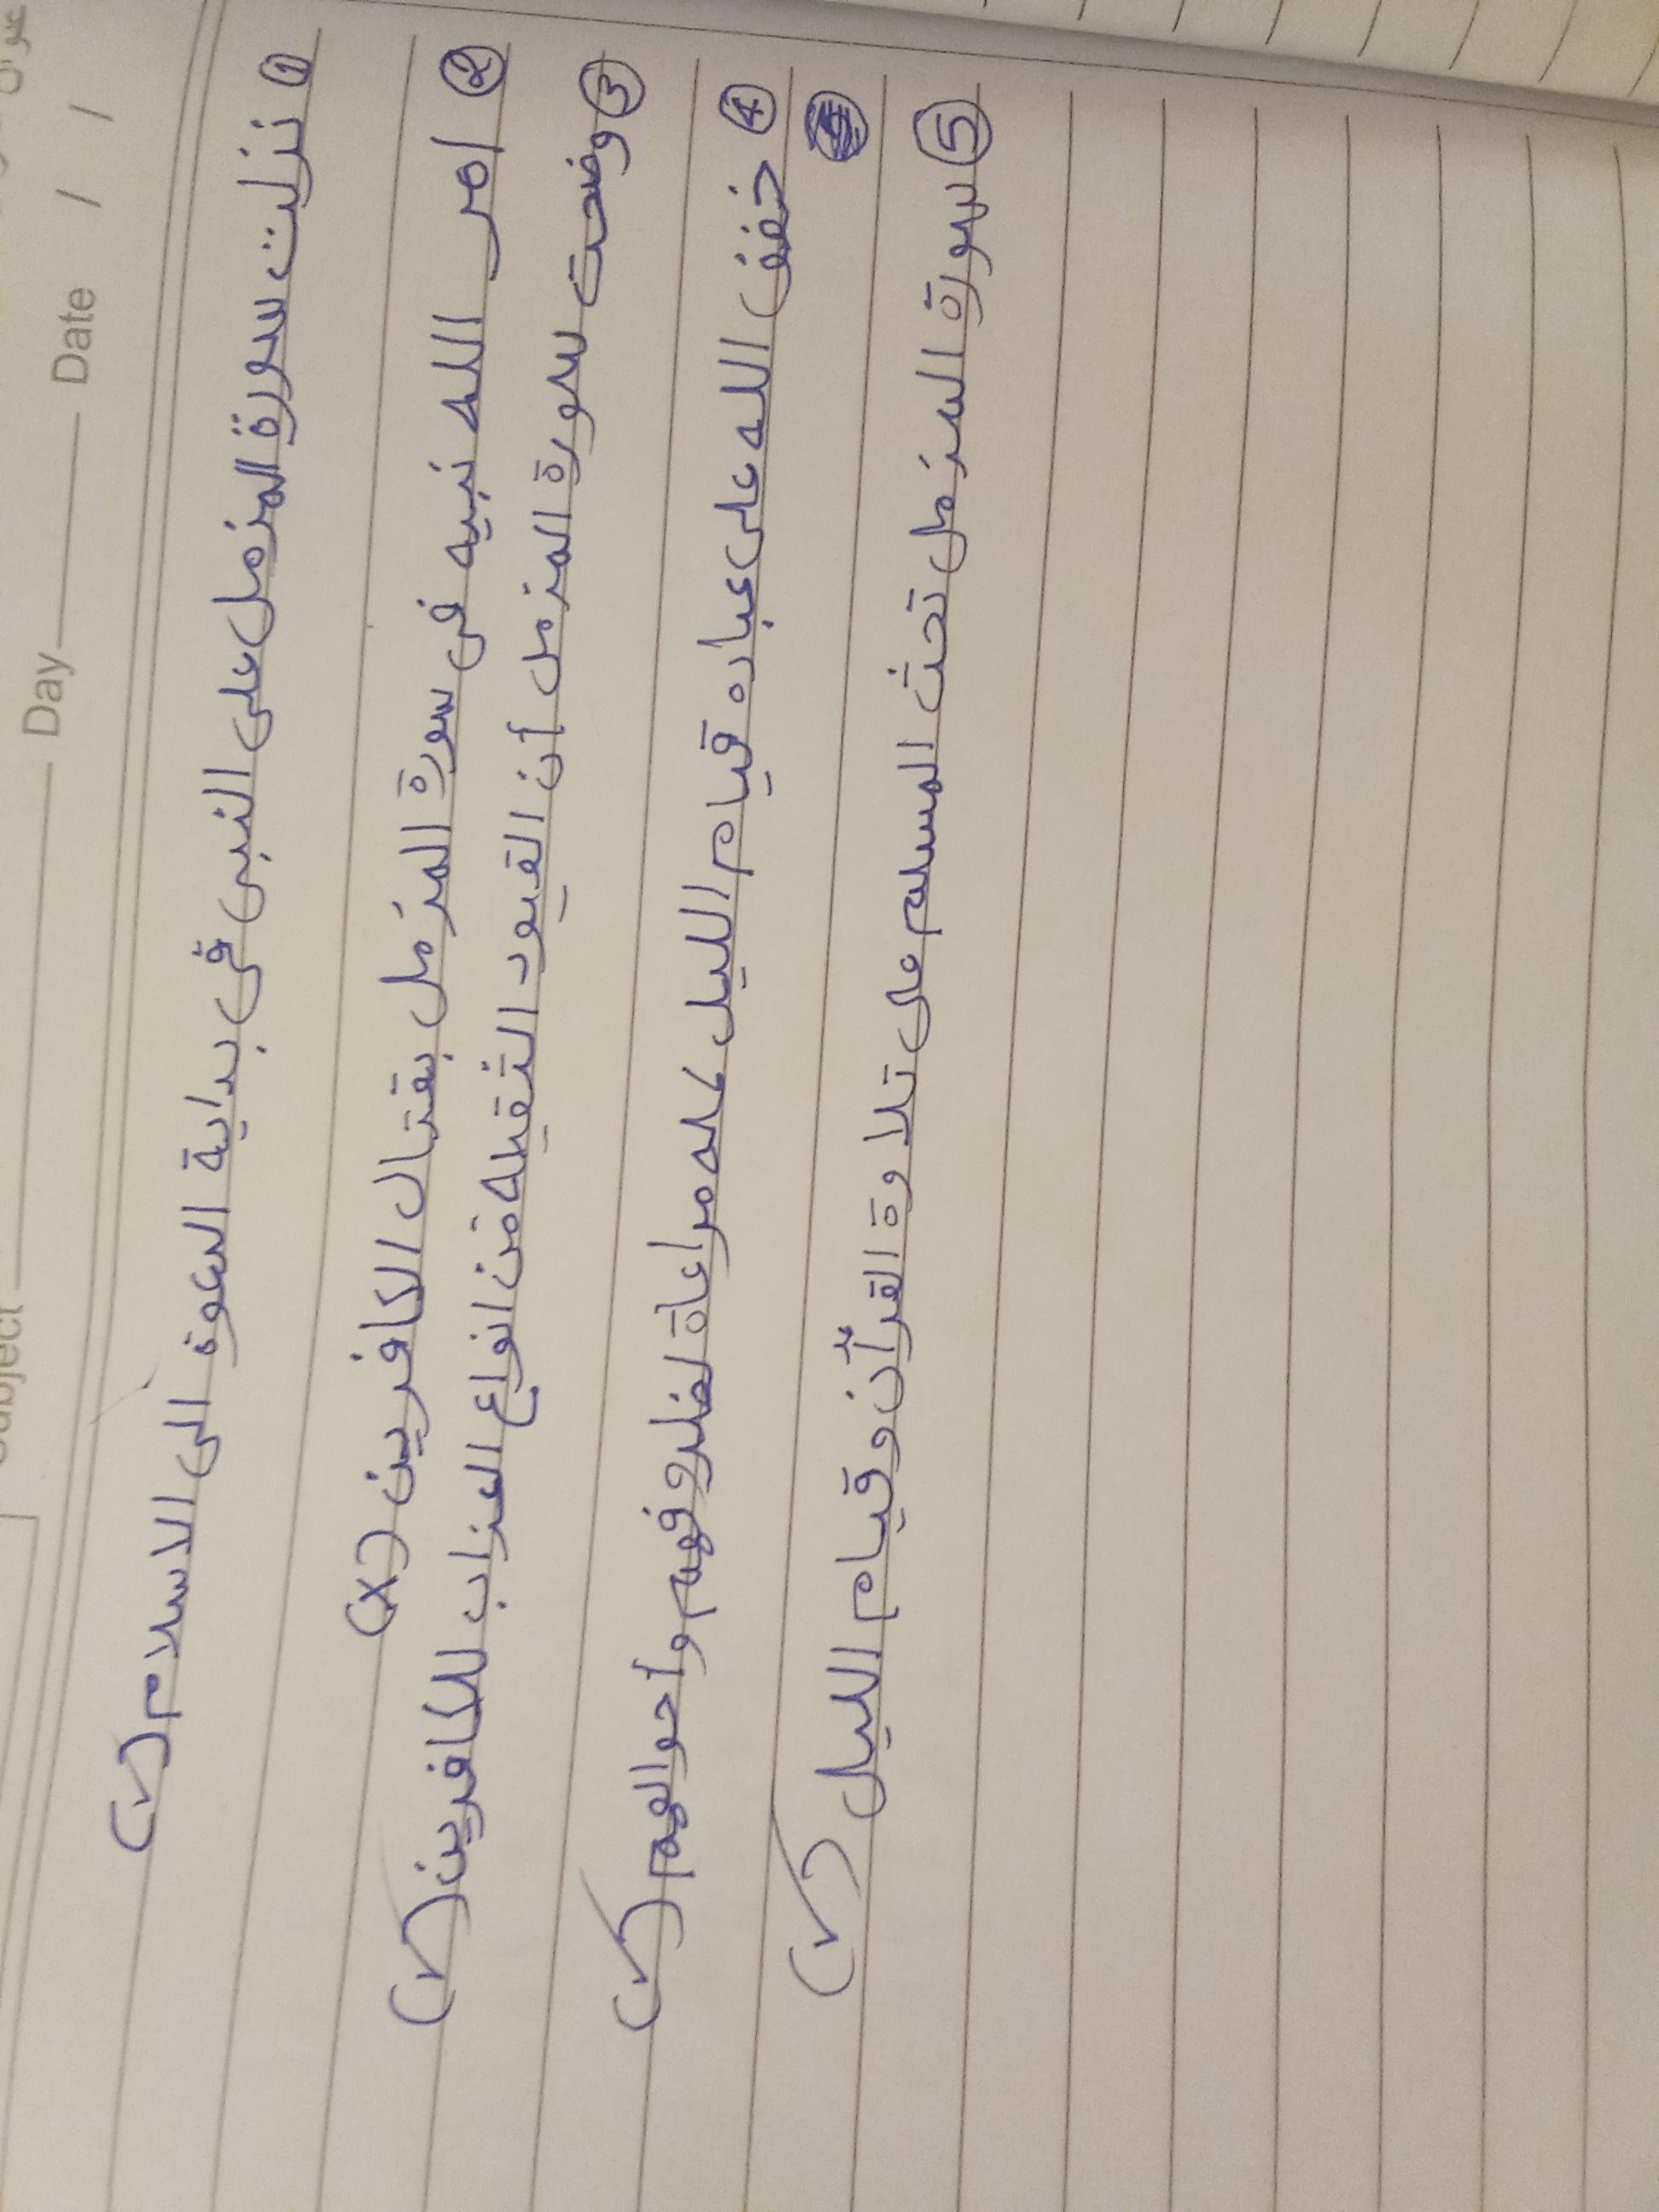 Subject Day Date / /
① نزلت سورة المزمل على النبى فى بداية الدعوة الى الاسلام (✓)
② امر الله نبيه فى سورة المزمل بقتال الكافرين (x)
③ وضحت سورة المزمل أن القيود الثقيله من انواع العذاب للكافرين (✓)
④ خفف الله على عباده قيام الليل كله مراعاة لظروفهم وأحوالهم (✓)
⑤ سورة المزمل تحث المسلم على تلاوة القرأن وقيام الليل (✓)